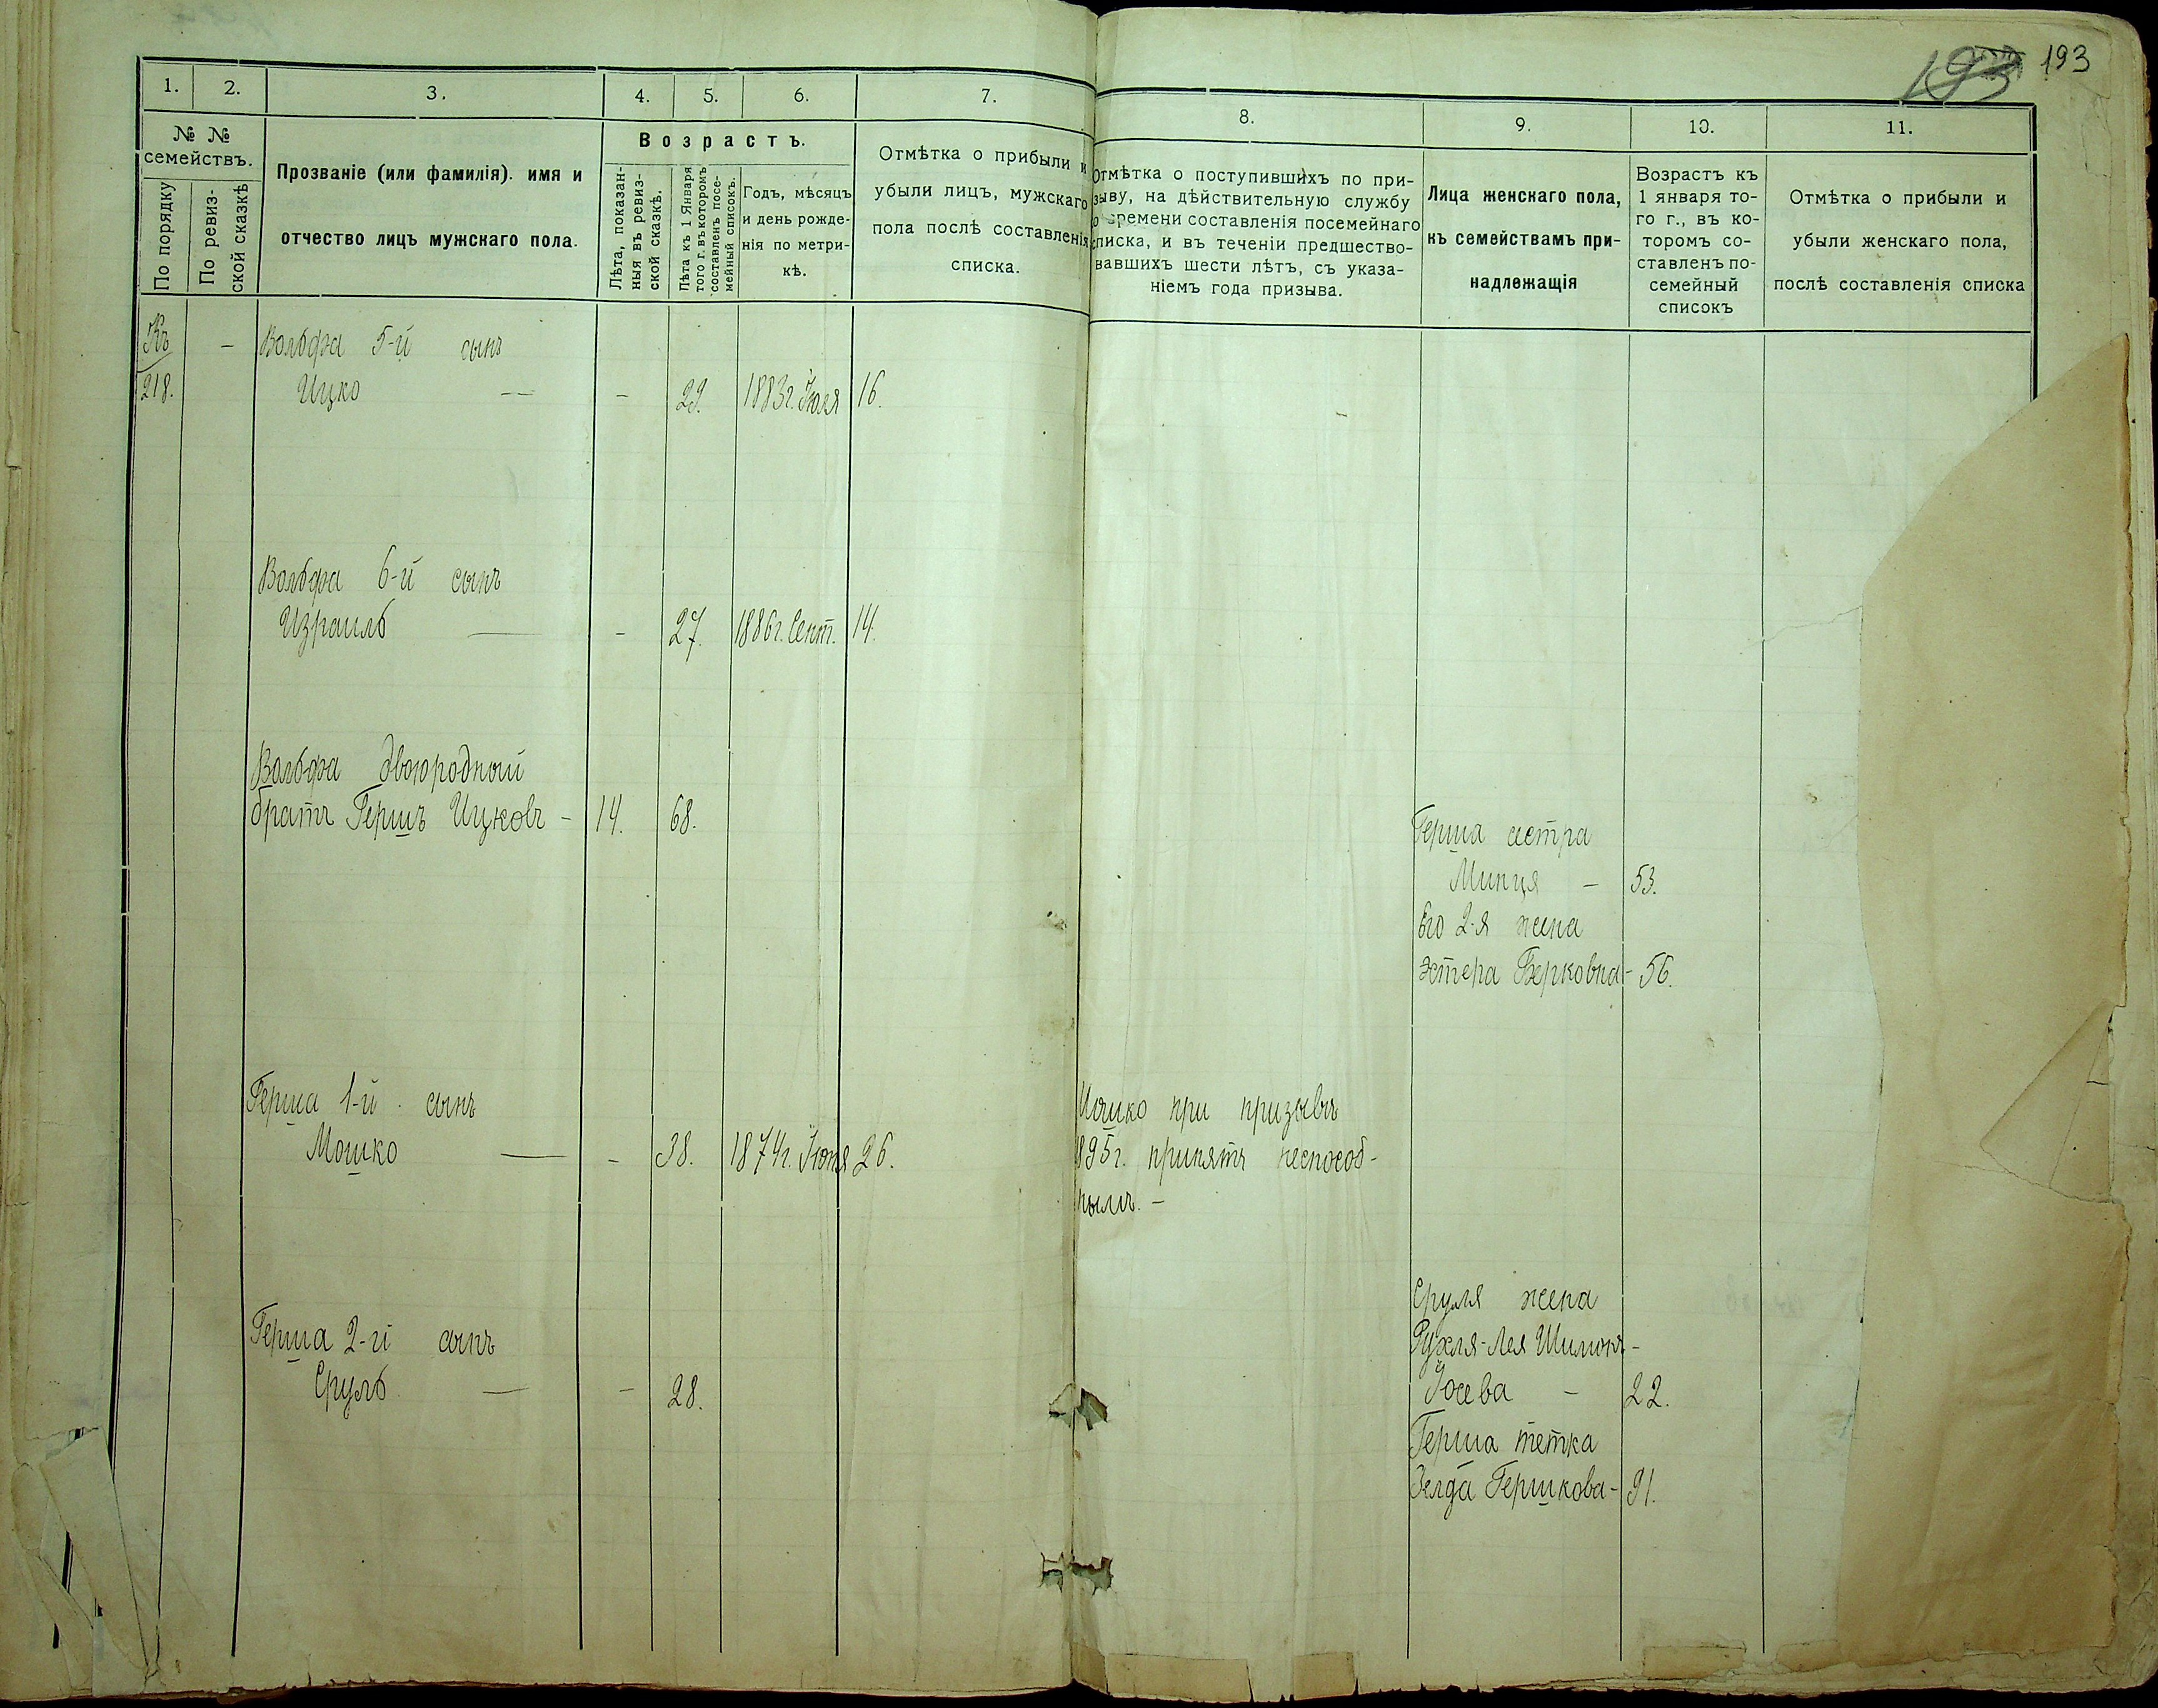 193 193
1. 2. 3. 4. 5. 6. 7.
№ №
семействъ.
По порядку
По ревиз-
ской сказкѣ
Прозваніе (или фамилія). имя и
отчество лицъ мужскаго пола.
Возрастъ.
Лѣта, показан-
ныя въ ревиз-
ской сказкѣ.
Лѣта къ 1 Января
того г. въ которомъ
составленъ посе-
мейный списокъ.
Годъ, мѣсяцъ
и день рожде-
нія по метри-
кѣ.
Отмѣтка о прибыли и
убыли лицъ, мужскаго
пола послѣ составленія
списка.
Къ — Вольфа 5-й сынъ
218. Ицко — - 29. 1883г. Іюля 16.
Вольфа 6-й сынъ
Израиль — - 27. 1886г. Сент. 14.
Вольфа двоюродный
братъ Гершъ Ицковъ - 14. 68.
Герша 1-й сынъ
Мошко — - 38. 1874г. Іюня 26.
Герша 2-й сынъ
Сруль — - 28.
8. 9. 10. 11.
Отмѣтка о поступившихъ по при-
зыву, на дѣйствительную службу
о времени составленія посемейнаго
списка, и въ теченіи предшество-
вавшихъ шести лѣтъ, съ указа-
ніемъ года призыва.
Лица женскаго пола,
къ семействамъ при-
надлежащія
Возрастъ къ
1 января то-
го г., въ ко-
торомъ со-
ставленъ по-
семейный
списокъ
Отмѣтка о прибыли и
убыли женскаго пола,
послѣ составленія списка
Герша сестра
Минця - 53.
Его 2-я жена
Эстера Берковна - 56.
Мошко при призывѣ
1895г. принятъ неспособ-
нымъ. -
Сруля жена
Рухля-Лея Шимона-
Іосева - 22.
Герша тетка
Зелда Гершкова - 91.